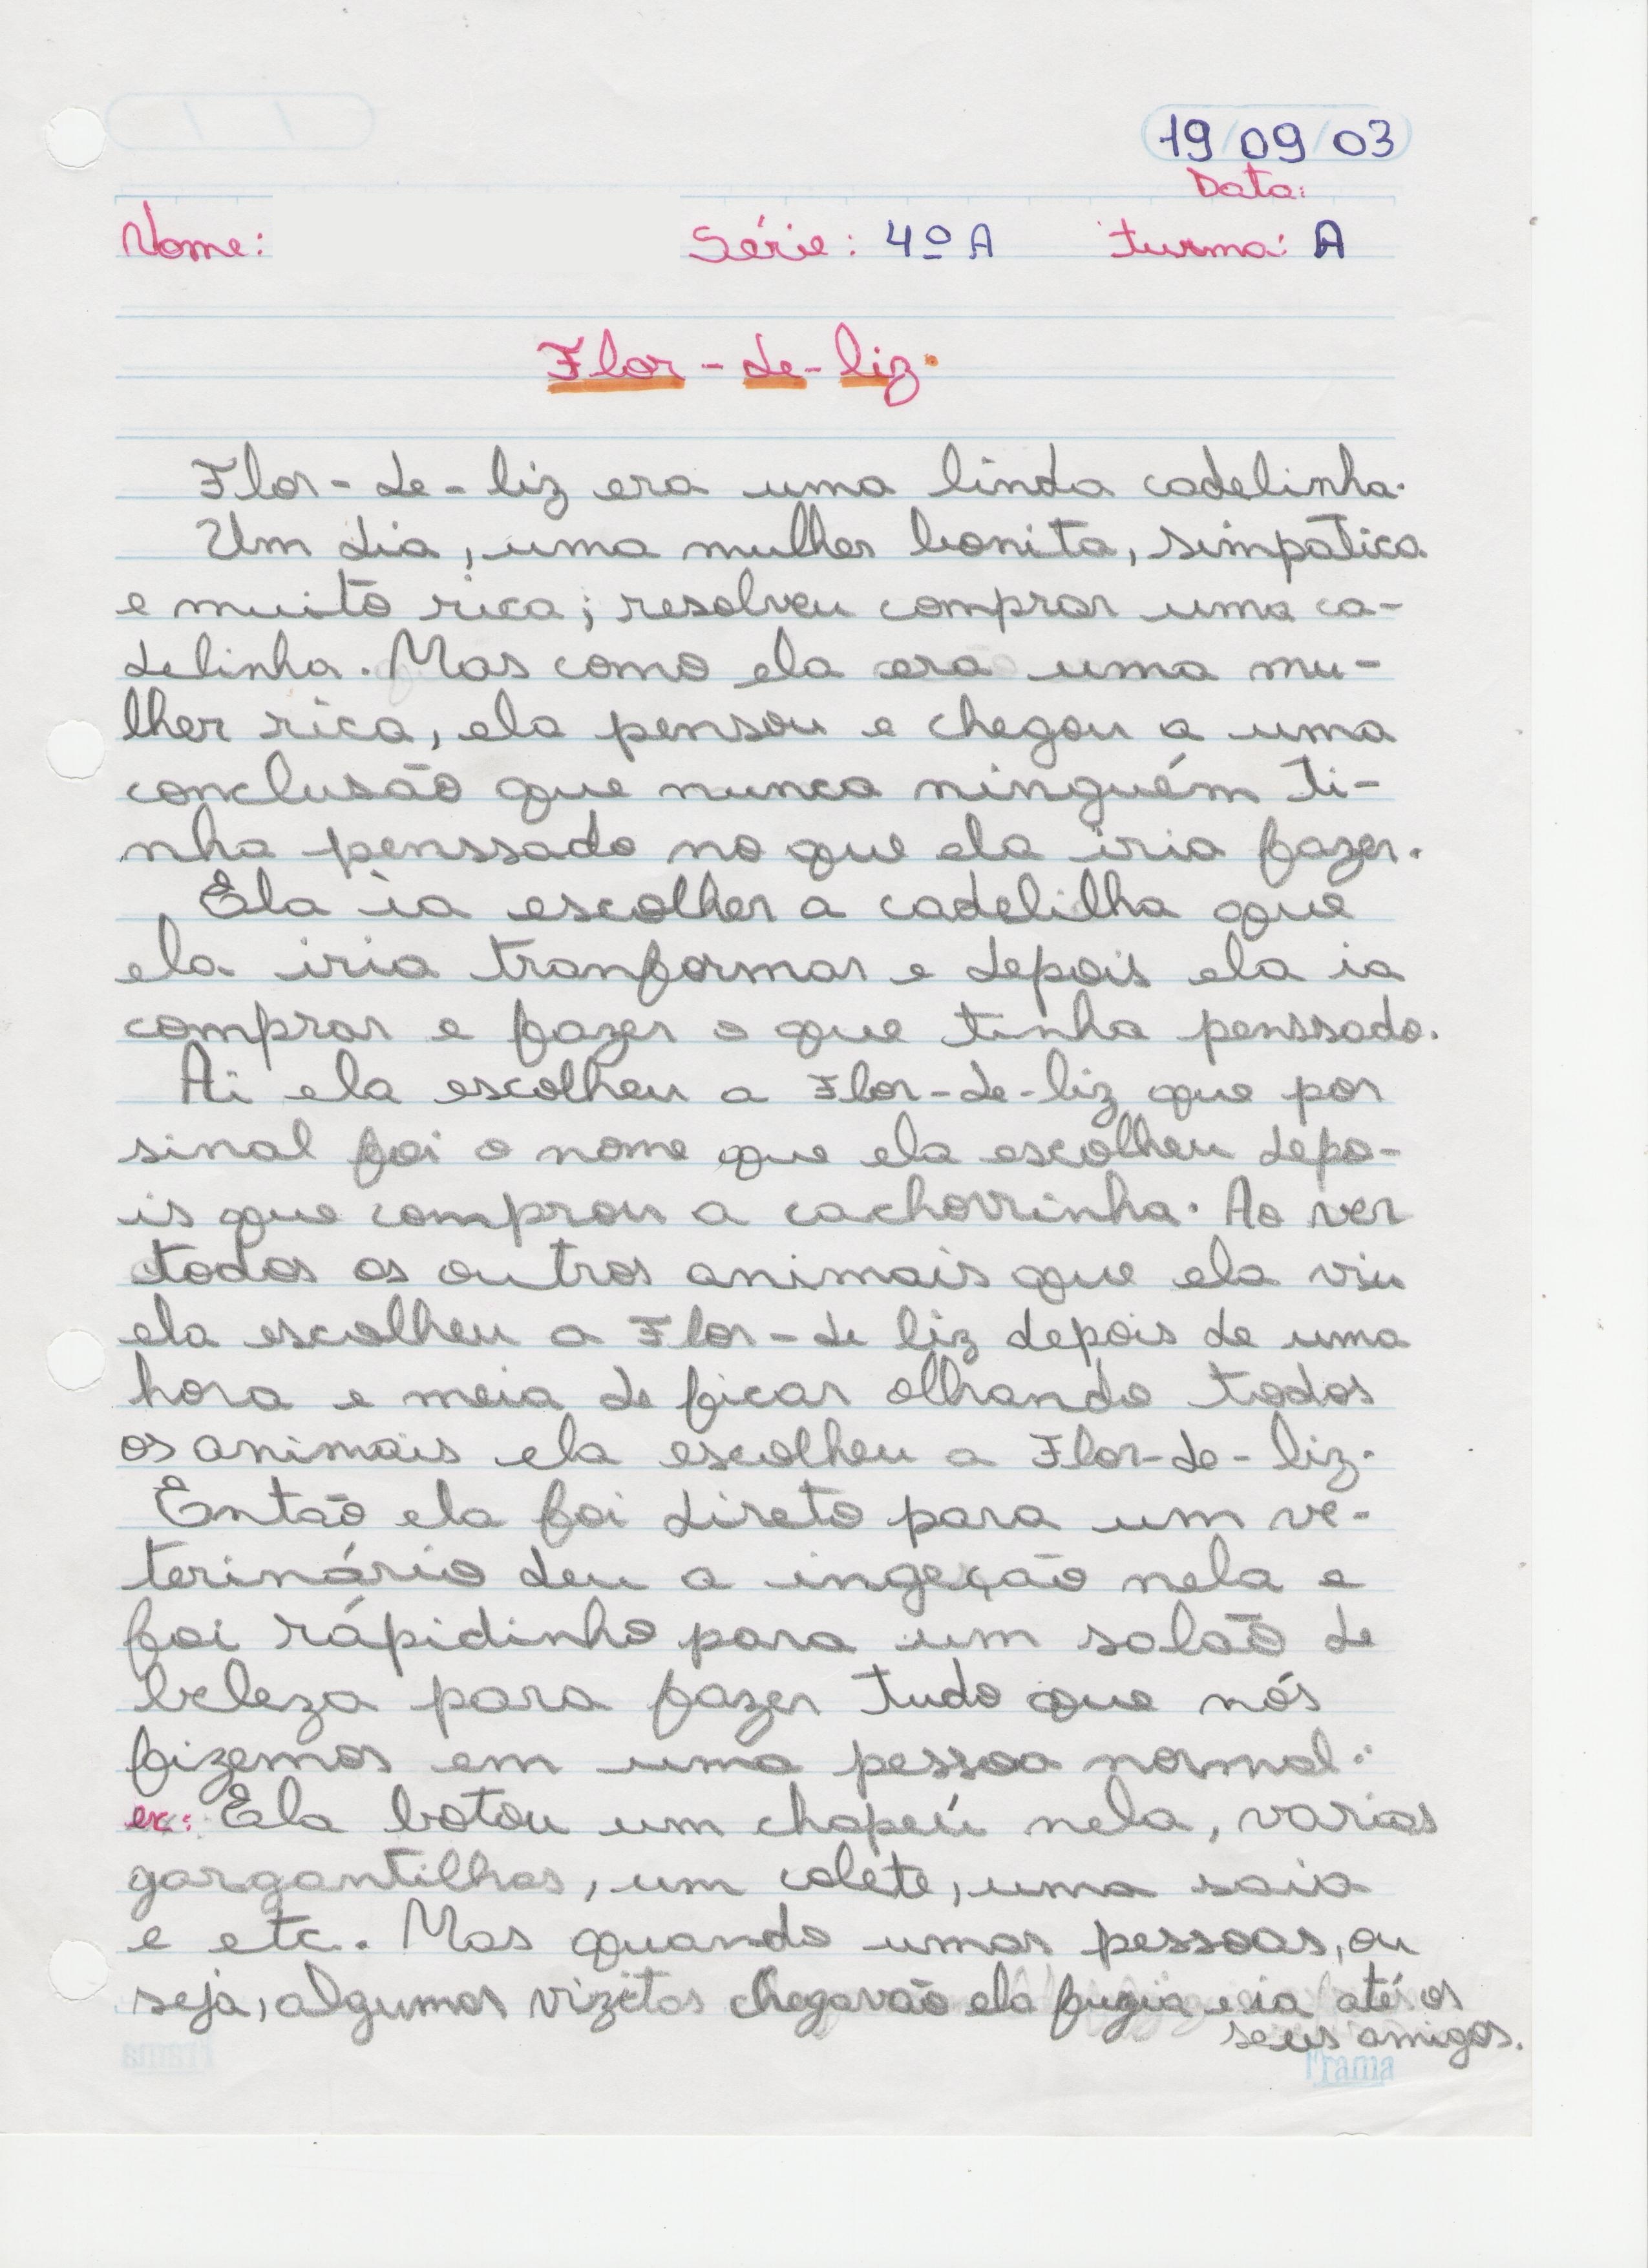 19/09/03
Data:
Nome: Série: 4º A turma: A
Flor-de-liz.
Flor-de-liz era uma linda cadelinha.
Um dia, uma mulher bonita, simpática
e muito rica; resolveu comprar uma ca-
delinha. Mas como ela era uma mu-
lher rica, ela pensou e chegou a uma
conclusão que nunca ninguém ti-
nha penssado no que ela iria fazer.
Ela ia escolher a cadelilha que
ela iria tranformar e depois ela ia
comprar e fazer o que tinha penssado.
Ai ela escolheu a Flor-de-liz que por
sinal foi o nome que ela escolheu depo-
is que comprou a cachorrinha. Ao ver
todos os outros animais que ela viu
ela escolheu a Flor-de liz depois de uma
hora e meia de ficar olhando todos
os animais ela escolheu a Flor-de-liz.
Então ela foi direto para um ve-
terinário deu a ingeção nela e
foi rápidinho para um salão de
beleza para fazer tudo que nós
fizemos em uma pessoa normal:
ex: Ela botou um chapeú nela, varias
gargantilhas, um colete, uma saia
e etc. Mas quando umas pessoas, ou
seja, algumas vizitas chegavão ela fugia e ia até os
seus amigos.
Frama